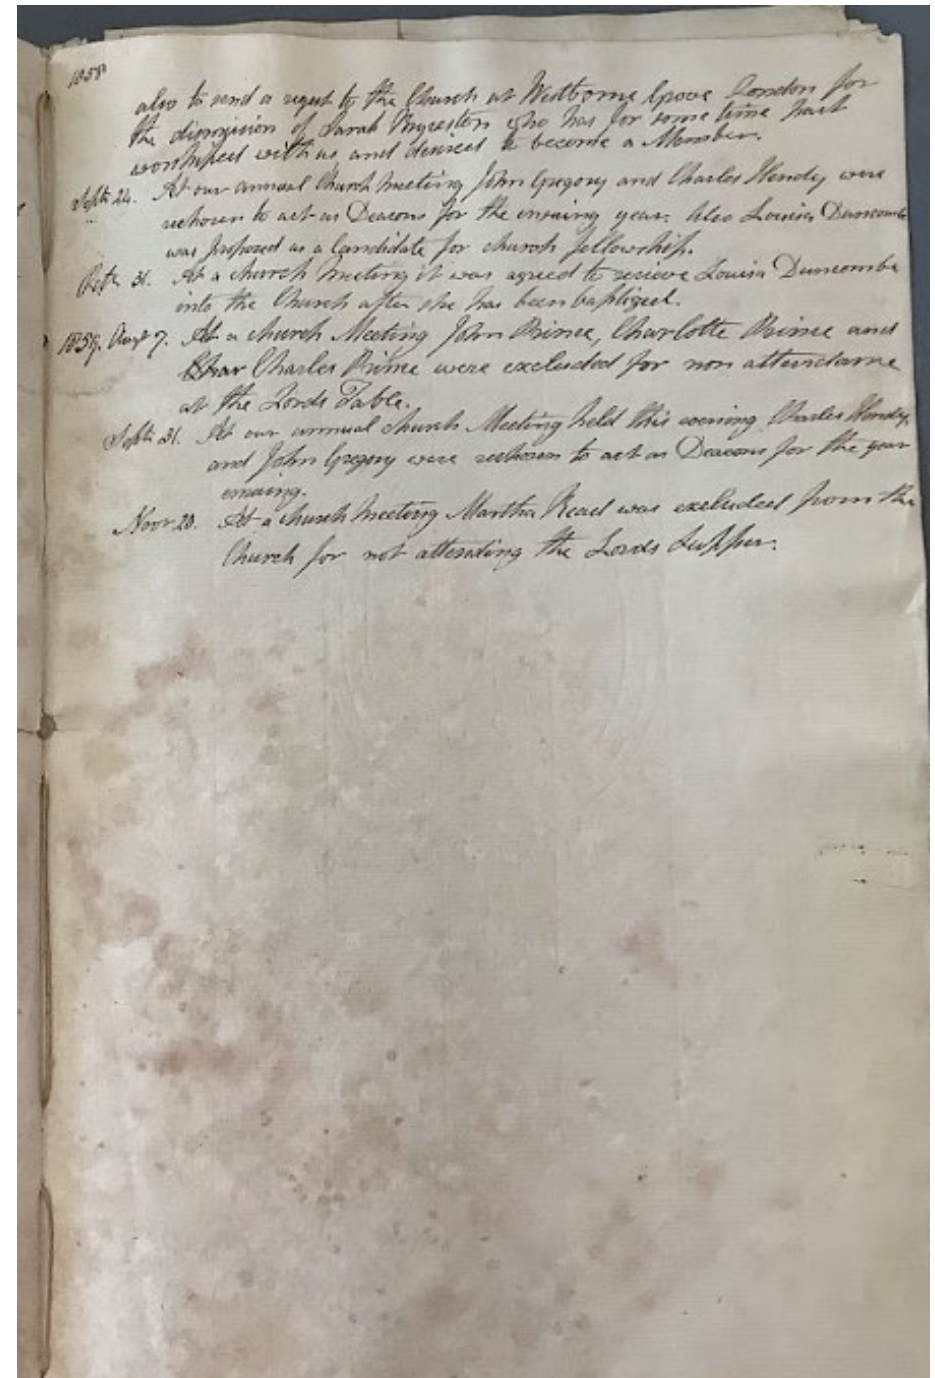 1858
also to send a request to the Church at Westborne Grove London for
the dismission of Sarah who has for some time past
worshiped with us and desires to become a Member.
Septr 24. At our annual Church Meeting John Gregory and Charles Hendy were
rechosen to act as Deacons for the ensuing year. Also Louisa Duncombe
was proposed as a Candidate for church fellowship.
Octr 31. At a church Meeting it was agreed to recieve Louisa Duncombe
into the Church after she has been baptized.
1859. Augt 7. At a church Meeting John Prince, Charlotte Prince and
Char Charles Prince were excluded for non attendance
at the Lords Table.
Septr 21. At our annual church Meeting held this evening Charles Hendy,
and John Gregory were rechosen to act as Deacons for the year
ensuing.
Novr 20. At a church Meeting Martha Read was excluded from the
Church for not attending the Lords Supper.